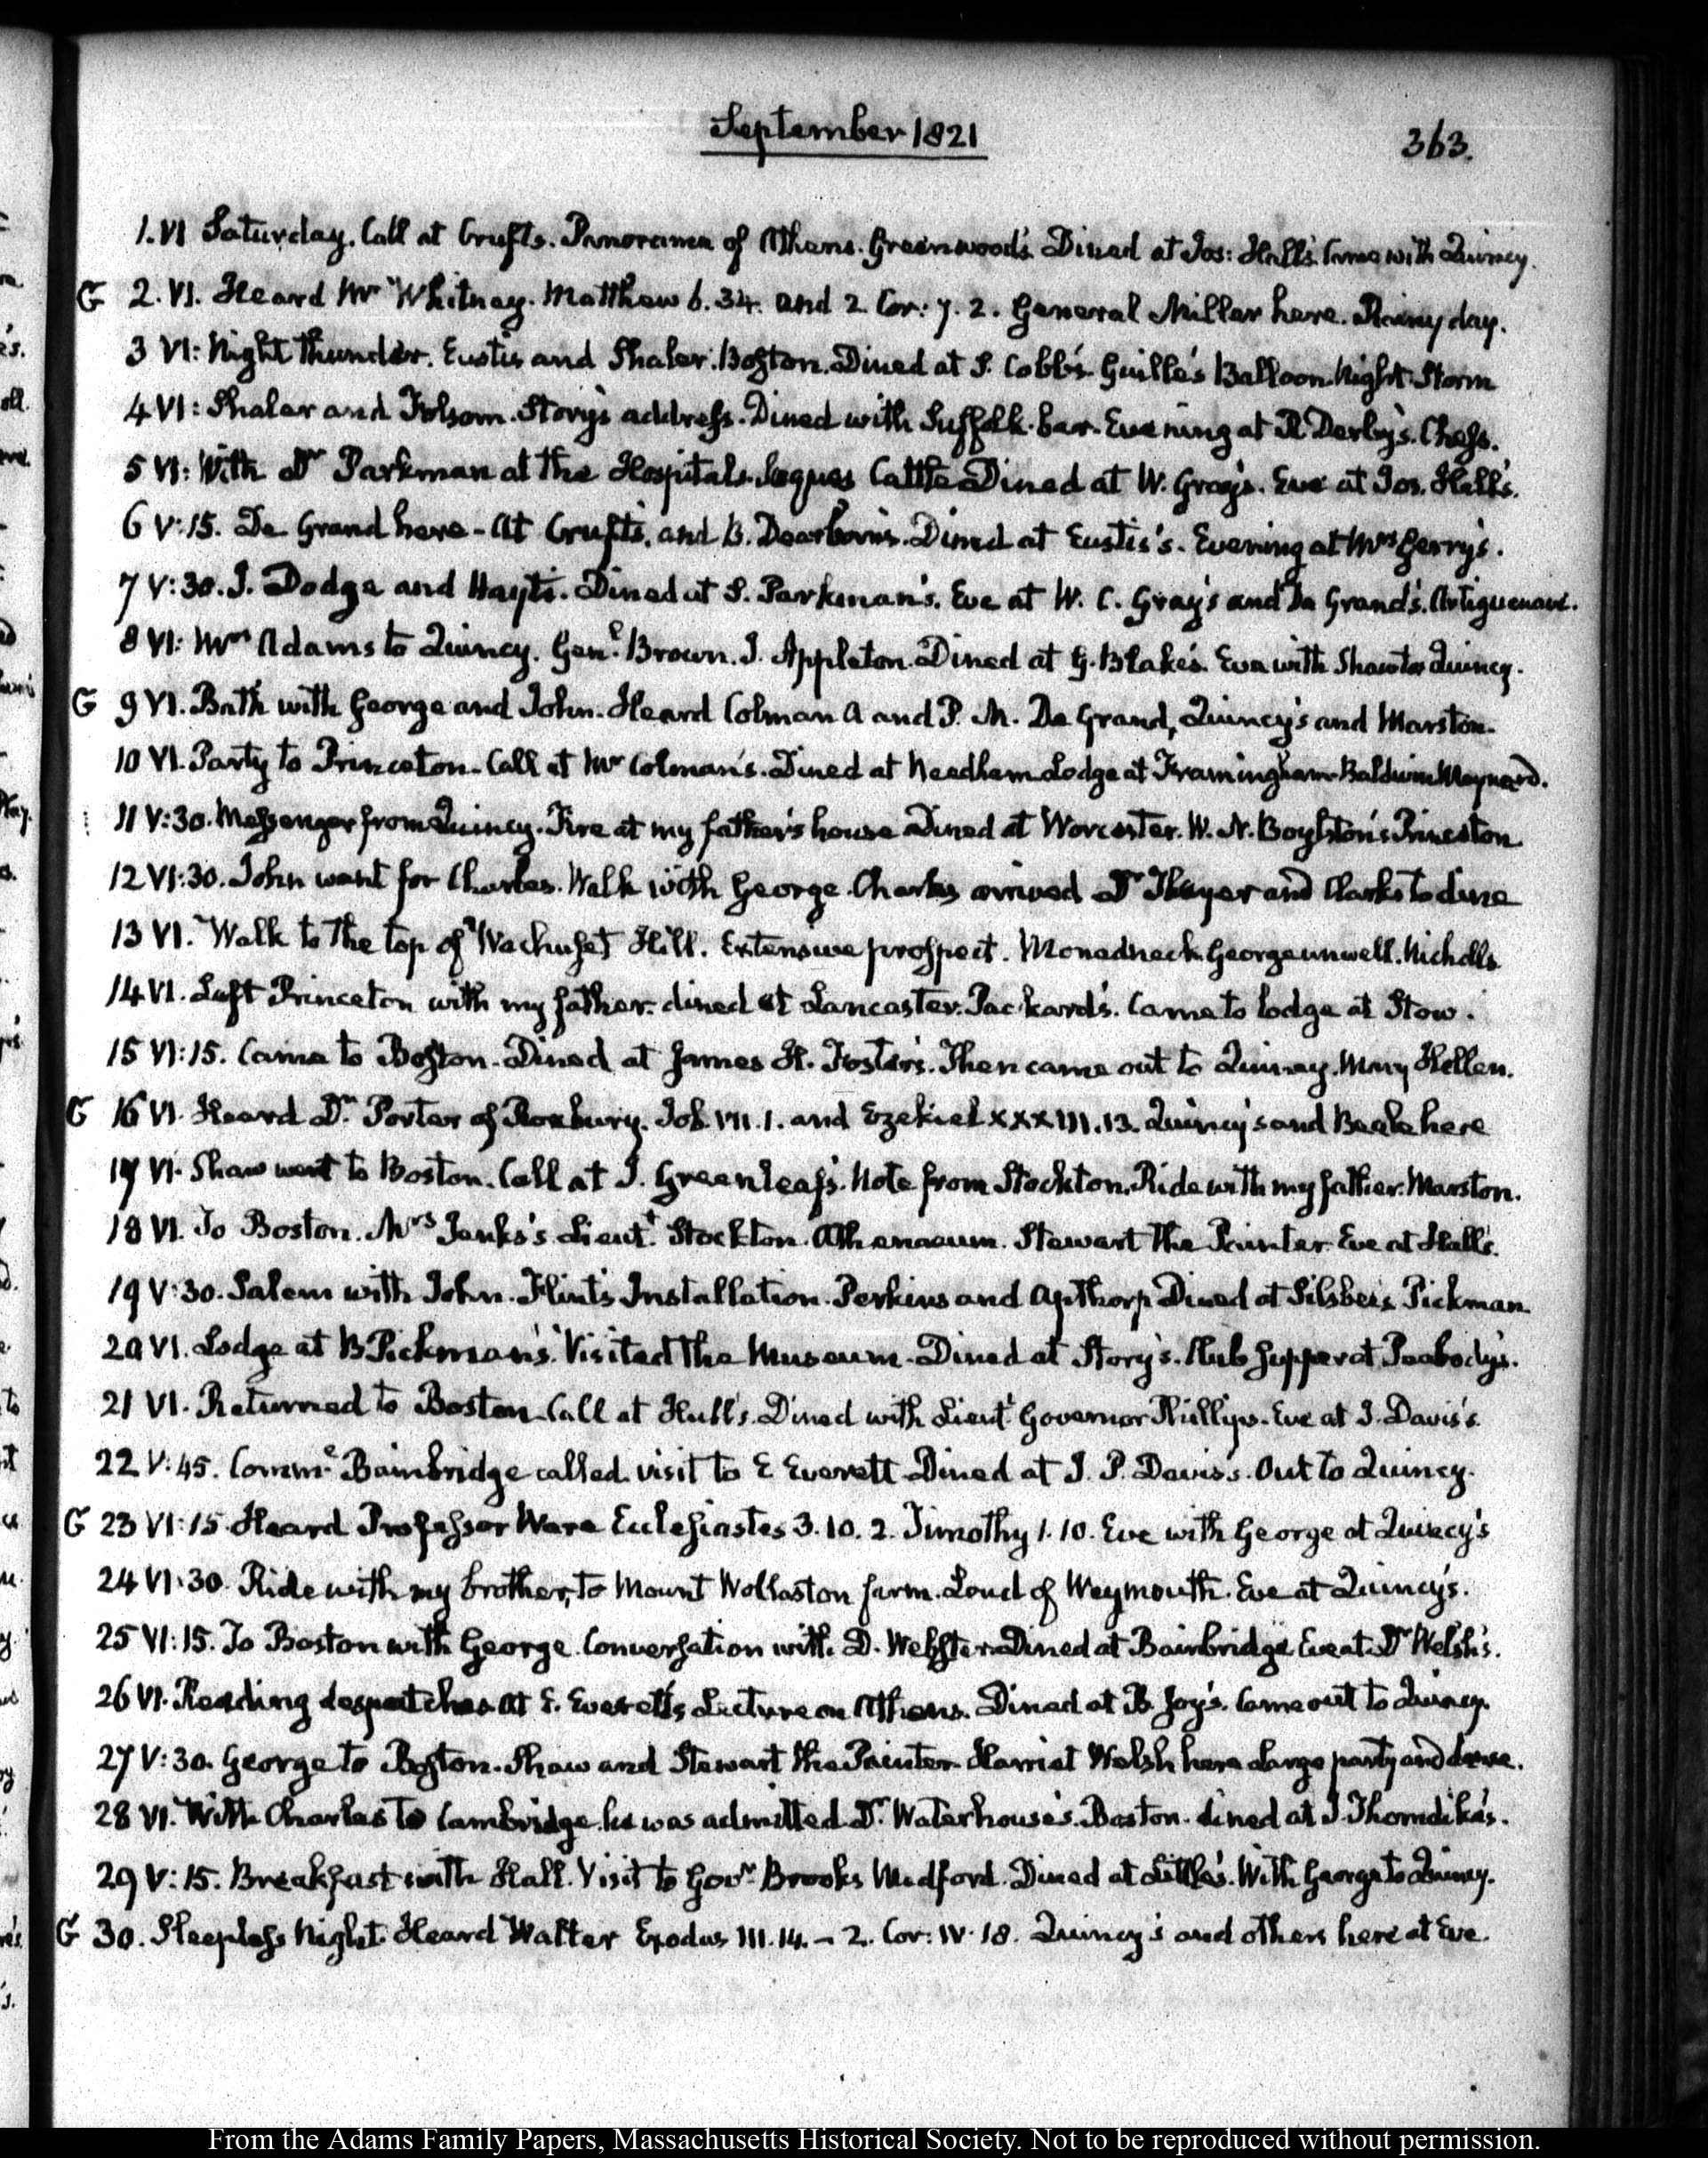 September 1821
363.
1. VI Saturday. Call at Crufts. Panorama of Athens. Greenwood's. Dined at Jos: Hall's. Came with Quincy.
G 2. VI. Heard Mr Whitney. Matthew 6. 34. and 2 Cor: 7. 2. General Miller here. Rainy day.
3 VI: Night Thunder. Eustis and Shaler. Boston. Dined at S. Cobb's. Guille's Balloon. Night Storm
4 VI: Shaler and Folsom. Story's address. Dined with Suffolk bar. Evening at R Derby's. Chess.
5 VI: With Dr Parkman at the Hospitals. Cattle Dined at W. Gray's. Eve at Jos. Hall's.
6 V:15. De Grand here - At Crufts, and B. Dearborn's. Dined at Eustis's. Evening at Mrs Gerry's.
7 V:30. J. Dodge and Hayti. Dined at S. Parkman's. Eve at W. C. Gray's and De Grand's. Artiguenave.
8 VI: Mrs Adams to Quincy. Genl Brown. J. Appleton. Dined at G. Blake's. Eve with Shaw to Quincy.
G 9 VI. Bath with George and John. Heard Colman A and P. M. De Grand, Quincy's and Marston.
10 VI. Party to Princeton. Call at Mr Colman's. Dined at Needham. Lodge at Framingham. Baldwin Maynard.
11 V:30. Messenger from Quincy. Fire at my father's house Dined at Worcester. W. N. Boylston's Princeton
12 VI:30. John went for Charles. Walk with George. Charles arrived Dr Thayer and Clarks to dine
13 VI. Walk to the top of Wachuset Hill. Extensive prospect. Monadneck. George unwell. Nicholls
14 VI. Left Princeton with my father. dined at Lancaster. Packard's. Came to lodge at Stow.
15 VI:15. Came to Boston. Dined at James H. Foster's. Then came out to Quincy. Mary Hellen.
G 16 VI. Heard Dr. Porter of Roxbury. Job. VII. 1. and Ezekiel XXXIII. 13. Quincy's and Beale here
17 VI. Shaw went to Boston. Call at J. Greenleaf's. Note from Stockton. Ride with my father. Marston.
18 VI. To Boston. Mrs Jenks's. Lieutt Stockton. Athenaeum. Stewart the Painter. Eve at Hall's.
19 V:30. Salem with John. Flint's Installation. Perkins and Apthorp Dined at Silsbee's Pickman
20 VI. Lodge at B Pickman's. Visited the Museum. Dined at Story's. Club Supper at Peabody's.
21 VI. Returned to Boston. Call at Hull's. Dined with Lieutt Governor Phillips. Eve at J. Davis's.
22 V:45. Comme Bainbridge called. visit to E Everett Dined at J. P. Davis's. Out to Quincy.
G 23 VI:15 Heard Professor Ware Ecclesiastes 3. 10. 2. Timothy 1. 10. Eve with George at Quincy's
24 VI:30. Ride with my brother, to Mount Wollaston farm. Loud of Weymouth. Eve at Quincy's.
25 VI:15. To Boston with George. Conversation with D. Webster. Dined at Bainbridge. Eve at Dr Welsh's.
26 VI. Reading despatches. At E. Everett's Lecture on Athens. Dined at B. Joy's. Came out to Quincy.
27 V:30. George to Boston. Shaw and Stewart the Painter. Harriet Welsh here. Large party and dance.
28 VI. With Charles to Cambridge. he was admitted. Dr. Waterhouse's. Boston. dined at I. Thorndike's.
29 V:15. Breakfast with Hall. Visit to Govr Brooks Medford. Dined at Little's. With George to Quincy.
G 30. Sleepless Night. Heard Walter Exodus III. 14. - 2. Cor: IV. 18. Quincy's and others here at Eve.
From the Adams Family Papers, Massachusetts Historical Society. Not to be reproduced without permission.